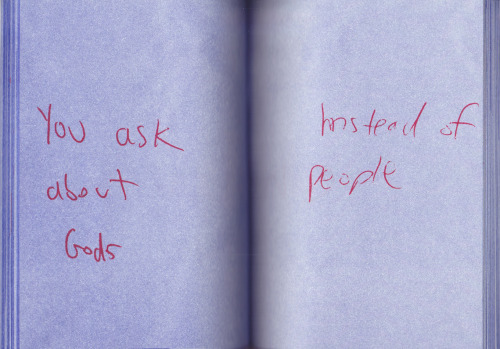 You ask
about
Gods
Instead of
people